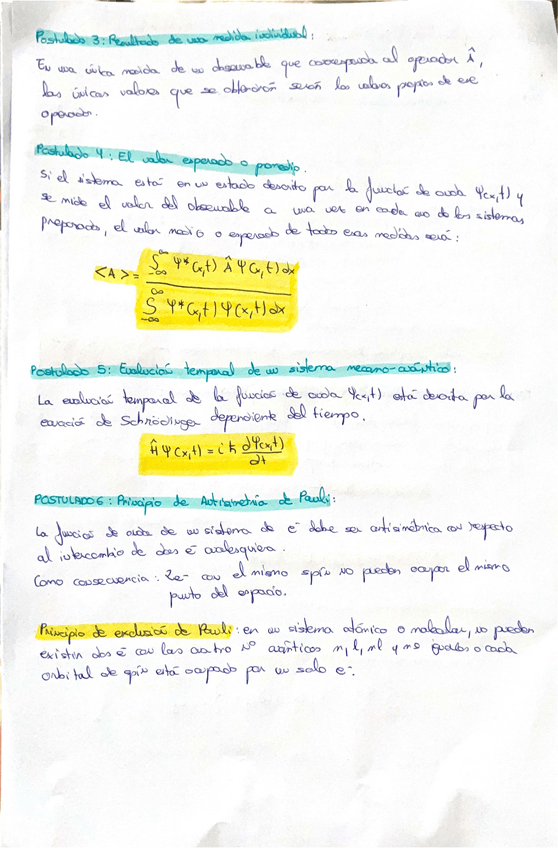 Postulado 3: Resultado de una medida individual:
En una única medida de un observable que corresponda al operador Â,
los únicos valores que se obtendrán serán los valores propios de ese
operador.
Postulado 4: El valor esperado o promedio.
Si el sistema está en un estado descrito por la función de onda Ψ(x,t) y
se mide el valor del observable a una vez en cada uno de los sistemas
preparados, el valor medio o esperado de todas esas medidas será:
<A> = ∫_{-∞}^{∞} Ψ*(x,t) Â Ψ(x,t) dx
∫_{-∞}^{∞} Ψ*(x,t) Ψ(x,t) dx
Postulado 5: Evolución temporal de un sistema mecano-cuántico:
La evolución temporal de la función de onda Ψ(x,t) está descrita por la
ecuación de Schrödinger dependiente del tiempo.
Ĥ Ψ(x,t) = i ħ dΨ(x,t)/dt
POSTULADO 6: Principio de Antisimetría de Pauli:
La función de onda de un sistema de e⁻ debe ser antisimétrica con respecto
al intercambio de dos e⁻ cualesquiera.
Como consecuencia: 2e⁻ con el mismo spin no pueden ocupar el mismo
punto del espacio.
Principio de exclusión de Pauli: en un sistema atómico o molecular, no pueden
existir dos e⁻ con los cuatro nº cuánticos n, l, ml y ms iguales o cada
orbital de spin está ocupado por un solo e⁻.